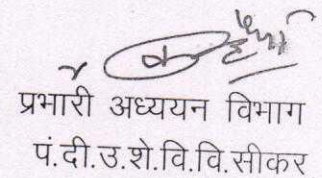 प्रभारी अध्ययन विभाग
पं.दी.उ.शे.वि.वि.सीकर